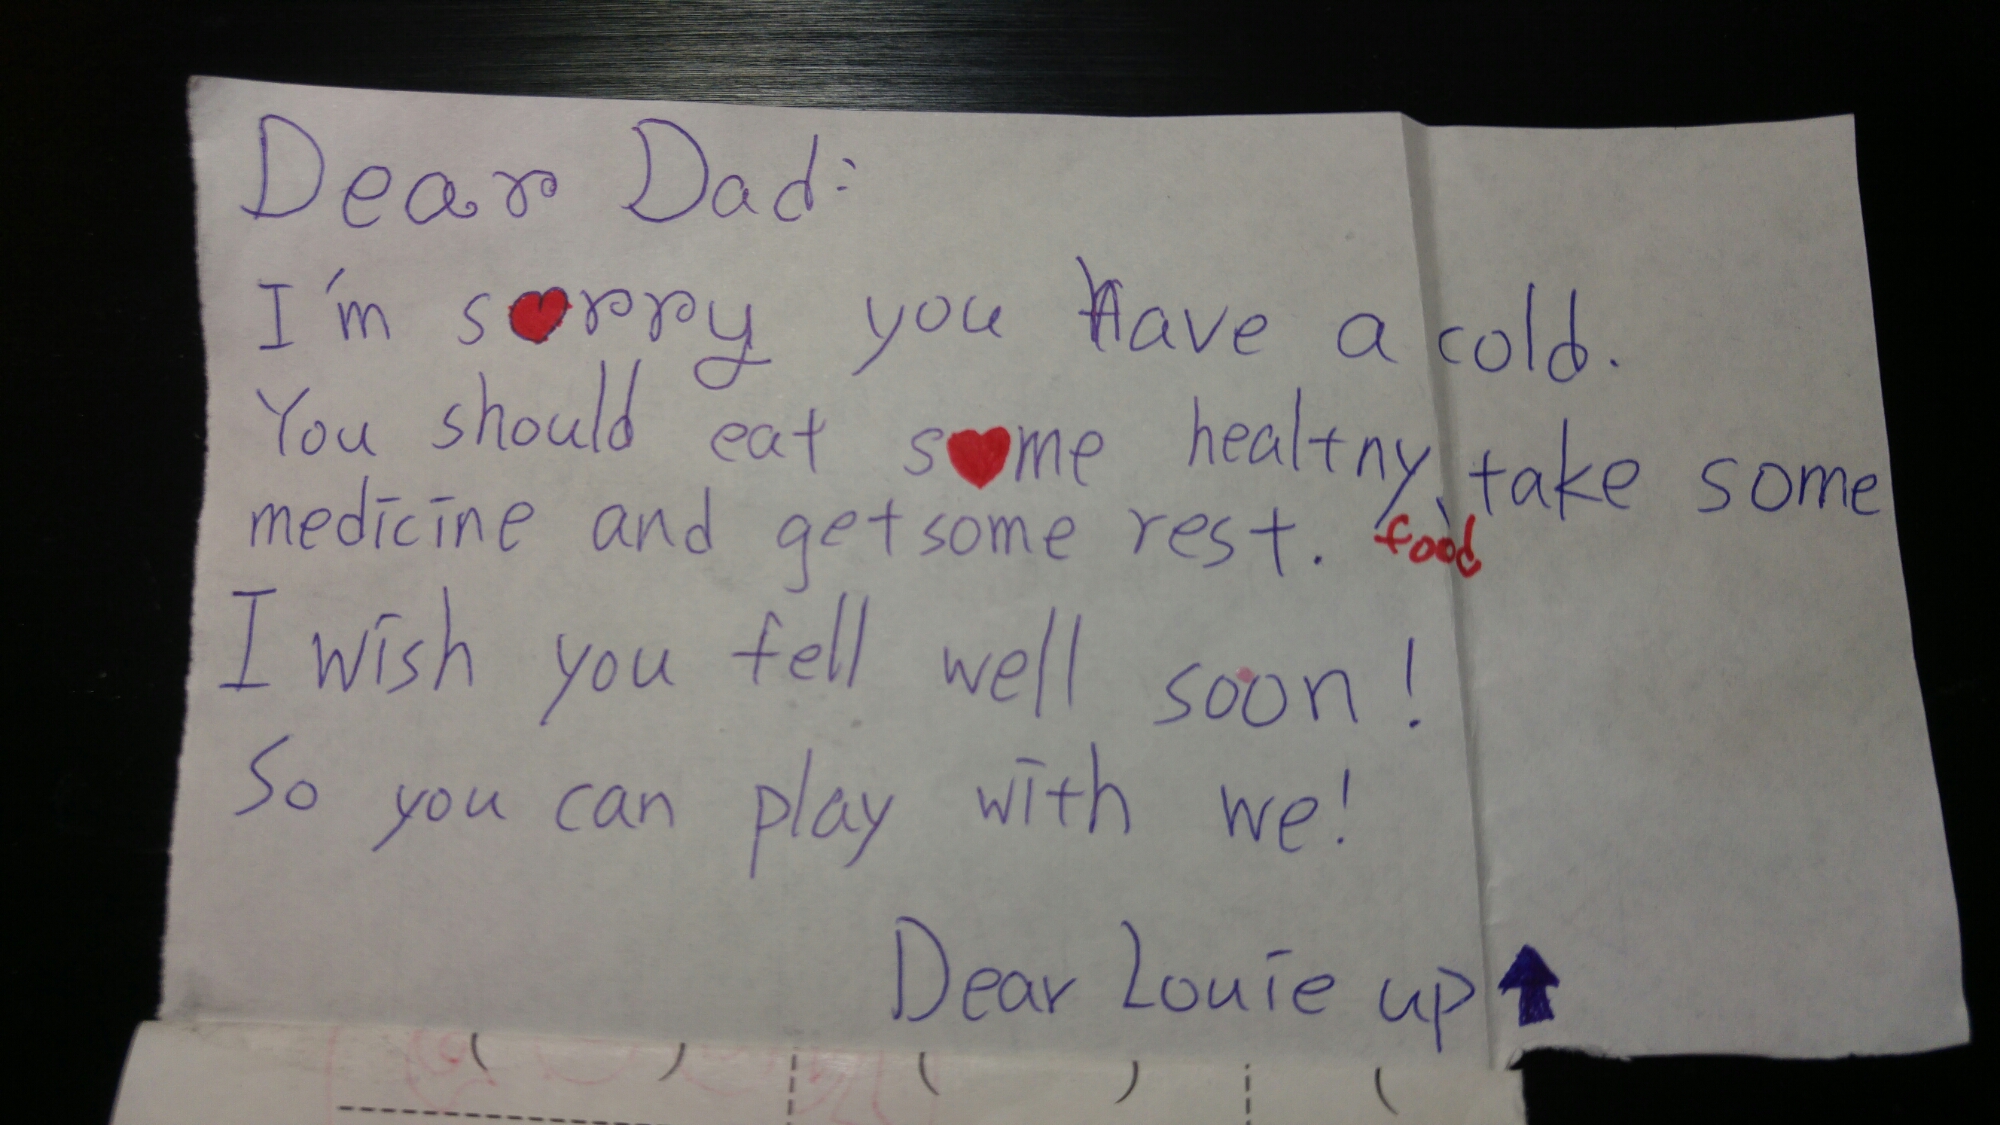 Dear Dad:
I'm s❤rry you have a cold.
You should eat s❤me healtny, take some
food
medicine and get some rest.
I wish you fell well soon!
So you can play with we!
Dear Louie up ⬆
( ) ( ) (